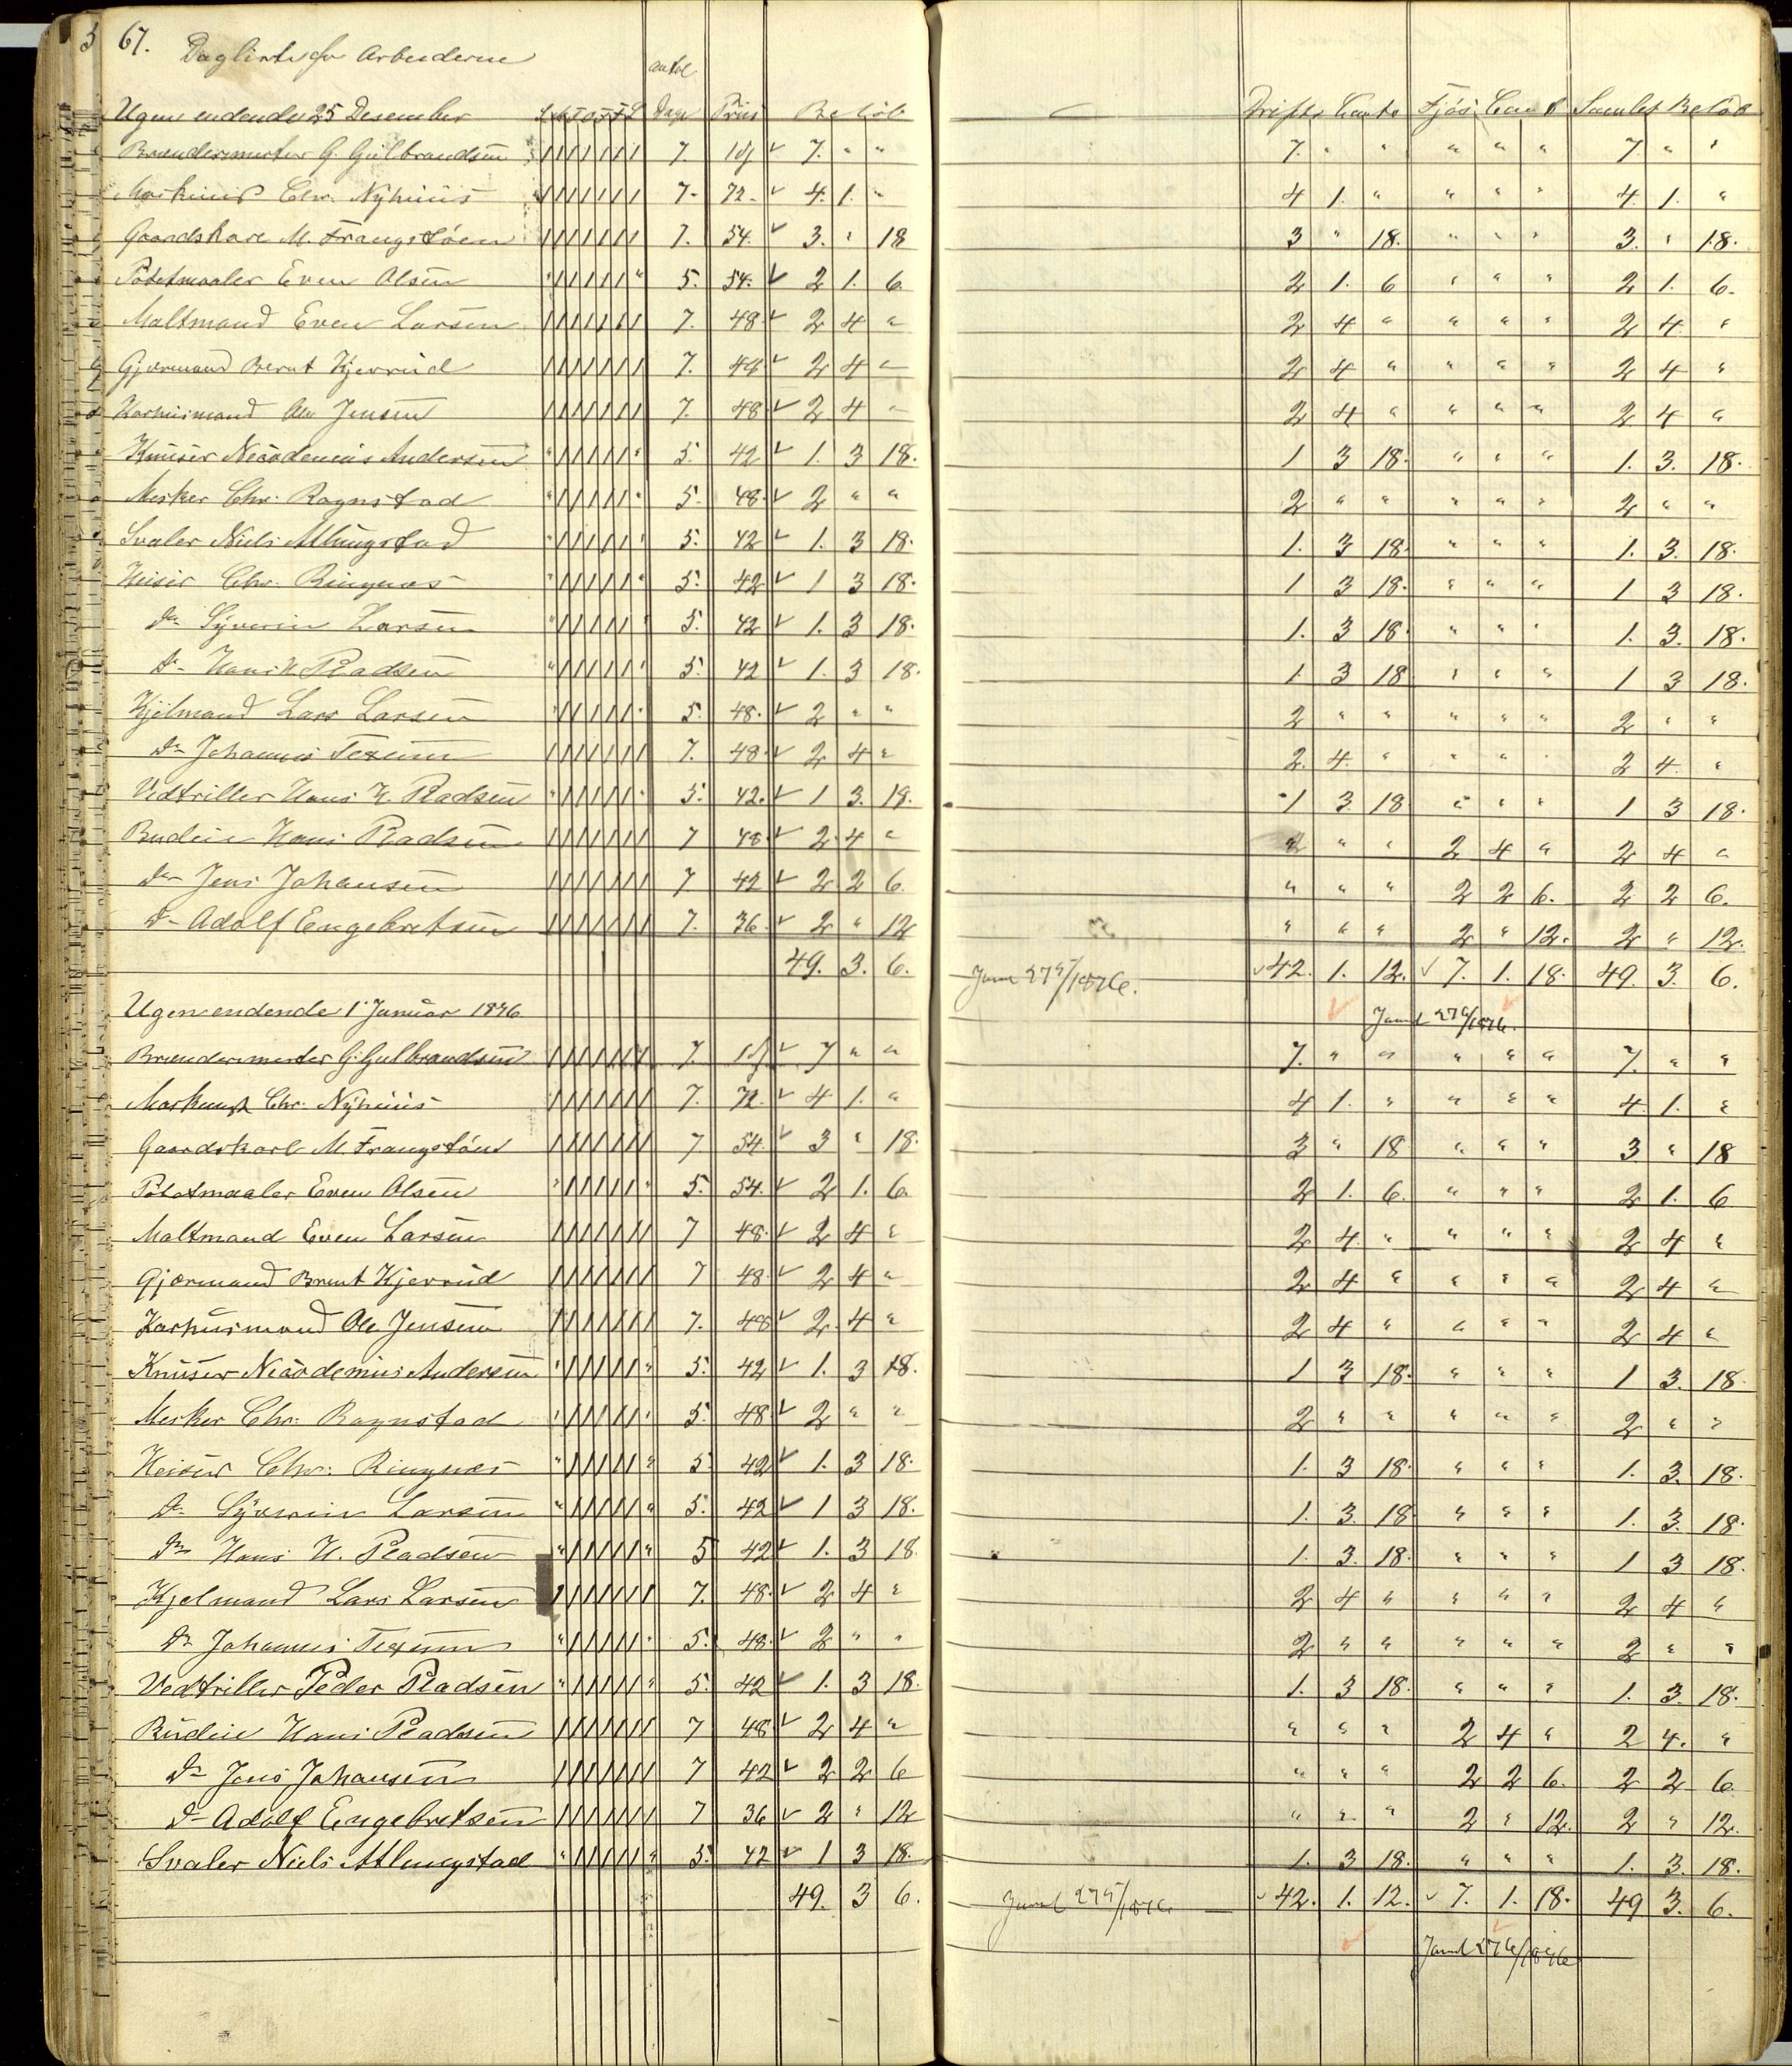 67. Daglister for Arbeiderne
Ugen endende 25 Desember S M T O T F L antal Dage Priis Beløb Drifts Conto Fjøs Conto Samlet Beløb
Brændermester G. Gulbrandsen 7. 7. " " 7. " " " " " 7. " "
Maskinist Chr. Nyhuus 7. 72. 4. 1. " 4 1. " " " " 4. 1. "
Gaardskarl M. Frangstøen 7. 54. 3. " 18 3 " 18. " " " 3. " 18.
Potetmaaler Even Olsen 5. 54. 2 1. 6. 2 1. 6 " " " 2 1. 6.
Maltmand Even Larsen 7. 48. 2 4 " 2 4 " " " " 2 4. "
Gjærmand Bernt Kjerrud 7. 48 2 4 " 2 4 " " " " 2 4 "
Karhuusmand Ole Jensen 7. 48 2 4 " 2 4 " " " " 2 4 "
Knuser Nicodemus Andersen 5. 42 1. 3 18. 1 3 18. " " " 1. 3. 18.
Mesker Chr. Rognstad 5. 48. 2 " " 2 " " " " " 2 " "
Svaler Niels Allungstad 5. 42 1. 3 18. 1. 3 18. " " " 1. 3. 18.
Heiser Chr. Ringnæs 5. 42 1 3 18. 1 3 18. " " " 1 3 18.
Do Syverin Larsen 5. 42 1. 3 18. 1. 3 18. " " " 1. 3. 18.
Do Hans H. Pladsen 5. 42 1. 3 18. 1. 3 18 " " " 1 3 18.
Kjelmand Lars Larsen 5. 48. 2 " " 2 " " " " " 2 " "
Do Johannes Texum 7. 48. 2 4 " 2. 4. " " " " 2 4. "
Vedtriller Hans H. Pladsen 5. 42. 1 3. 18. 1 3. 18 " " " 1 3 18.
Budeie Hans Pladsen 7 48. 2. 4 " " " 2 4 " 2 4 "
Do Jens Johansen 7 42 2 2 6. " " " 2 2 6. 2 2 6.
Do Adolf Engebretsen 7. 36. 2 " 12 " " " 2 " 12. 2 " 12.
49. 3. 6. Journal 275/1876. 42. 1. 12. 7. 1. 18. 49. 3. 6.
Ugen endende 1 Januar 1876 Journal 276/1876.
Brændermester G. Gulbrandsen 7. 7 " " 7. " " " " " 7. " "
Maskinist Chr. Nyhuus 7. 72. 4 1. " 4 1. " " " " 4. 1. "
Gaardskarl M. Frangstøen 7 54. 3 " 18. 3 " 18 " " " 3 " 18
Potetmaaler Even Olsen 5. 54. 2 1. 6. 2 1. 6. " " " 2 1. 6
Maltmand Even Larsen 7 48. 2 4 " 2 4. " " " " 2 4 "
Gjærmand Bernt Kjerrud 7 48. 2 4 " 2 4 " " " " 2 4 "
Karhuusmand Ole Jensen 7. 48 2. 4 " 2 4 " " " " 2 4 "
Knuser Nicodemus Andersen 5. 42 1. 3 18. 1 3 18. " " " 1 3. 18.
Mesker Chr. Rognstad 5. 48 2 " " 2 " " " " " 2 " "
Heiser Chr. Ringnæs 5 42 1. 3 18. 1. 3 18. " " " 1. 3. 18.
Do Syverin Larsen 5. 42 1 3 18. 1. 3. 18 " " " 1. 3. 18.
Do Hans H. Pladsen 5 42 1. 3 18. 1. 3. 18. " " " 1 3 18.
Kjelmand Lars Larsen 7. 48. 2 4 " 2 4 " " " " 2 4 "
Do Johannes Texum 5. 48. 2 " " 2 " " " " " 2 " "
Vedtriller Peder Pladsen 5. 42 1. 3 18. 1. 3 18. " " " 1. 3. 18.
Budeie Hans Pladsen 7 48 2 4 " " " " 2 4 " 2 4. "
Do Jens Johansen 7 42 2 2 6 " " " 2 2 6. 2 2 6.
Do Adolf Engebretsen 7 36 2 " 12 " " " 2 " 12. 2 " 12.
Svaler Niels Allungstad 5. 42 1 3 18. 1. 3 18. " " " 1. 3. 18.
49. 3 6. Journal 275/1876 42. 1. 12. 7. 1. 18. 49 3. 6.
Journal 276/1876